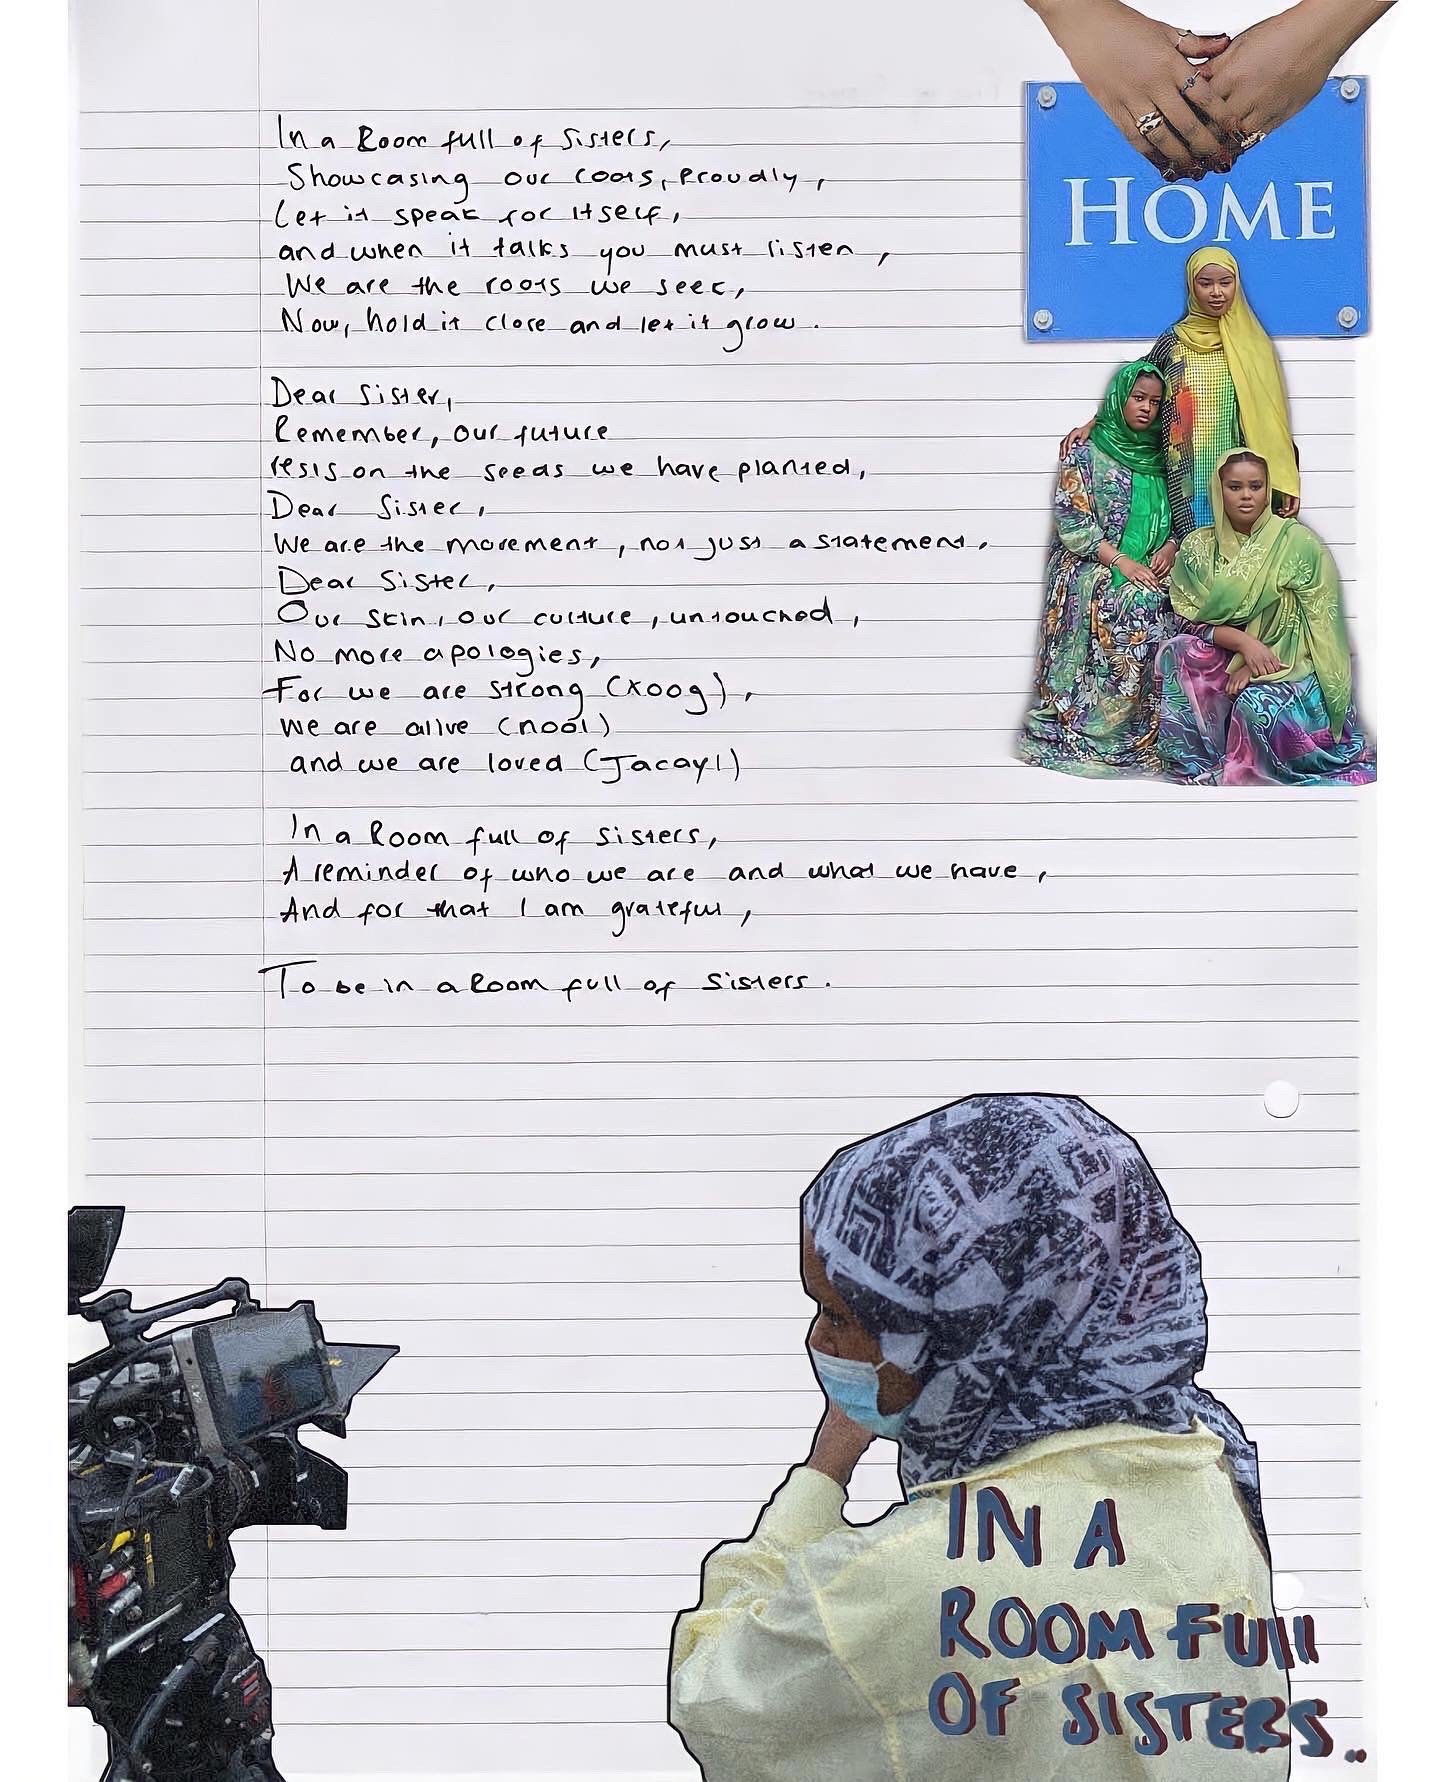 In a Room full of Sisters,
Showcasing our roots, Proudly,
Let it speak for itself,
and when it talks you must listen,
We are the roots we seek,
Now, hold it close and let it grow.
Dear Sister,
Remember, our future
rests on the seeds we have planted,
Dear Sister,
We are the movement, not just a statement,
Dear Sister,
Our skin, our culture, untouched,
No more apologies,
For we are strong (Xoog),
We are alive (nool)
and we are loved (Jacayl)
In a Room full of Sisters,
A reminder of who we are and what we have,
And for that I am grateful,
To be in a Room full of Sisters.
HOME
IN A
ROOM FUll
OF SISTERS..